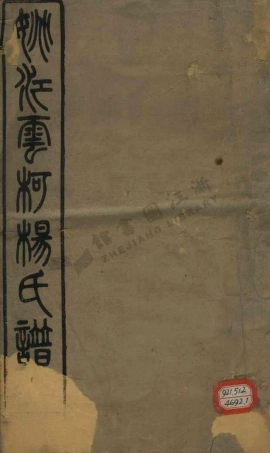 姚江雲柯楊氏譜
浙江圖書館
ZHEJIANG LIBRARY
921.512
4692.1